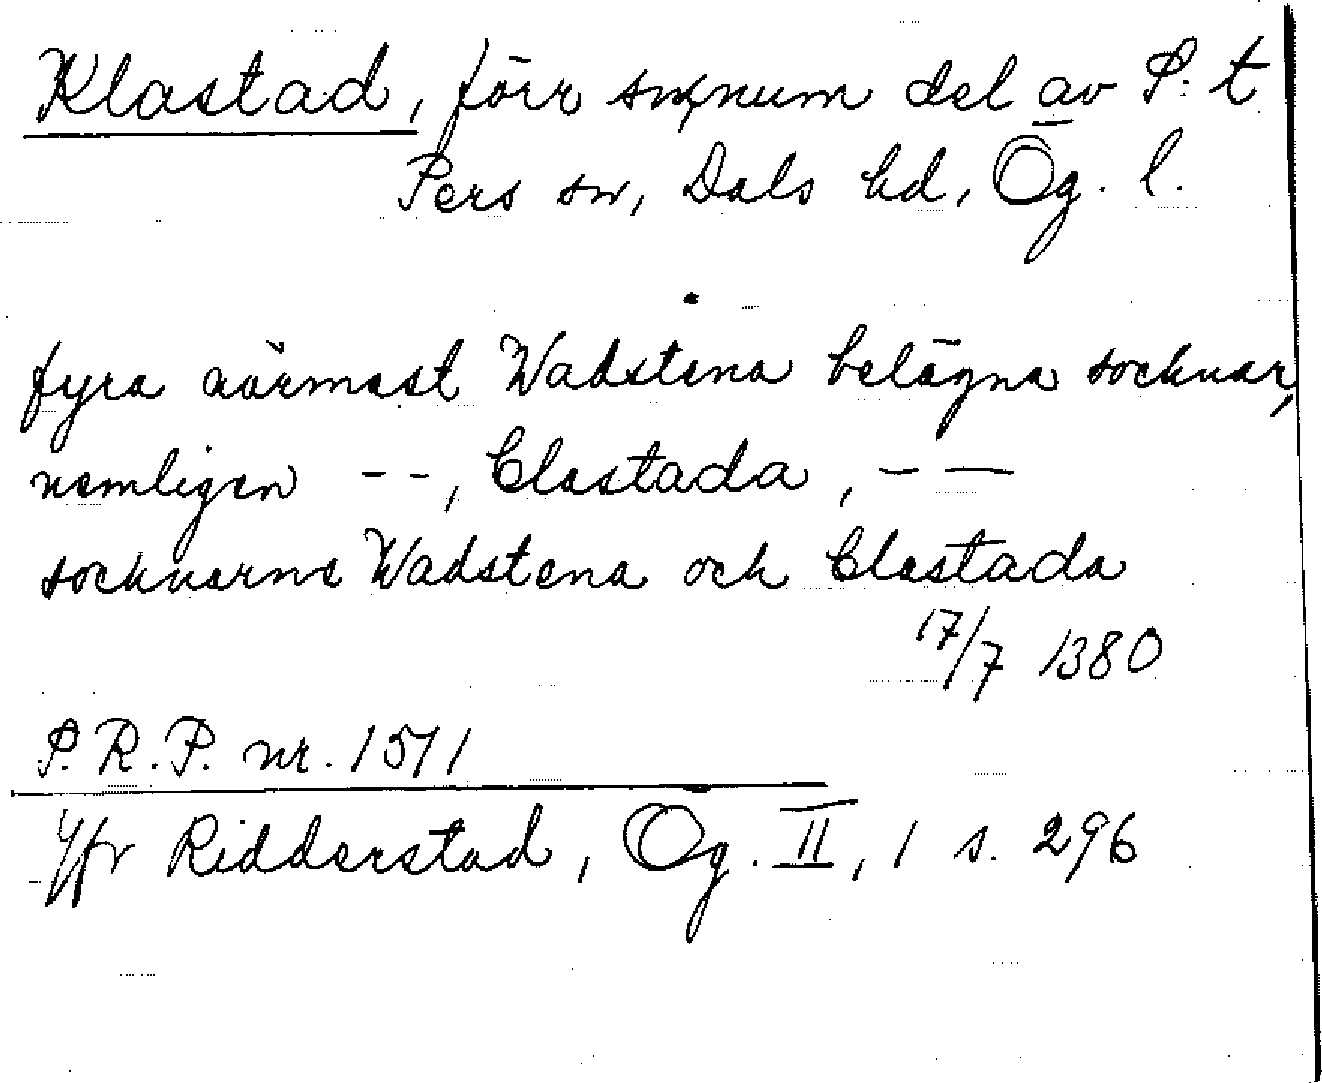 Klastad, förr sn, num del av S:t
Pers sn, Dals hd, Ög. l.
fyra närmast Wadstena belägna socknar,
nemligen - -, Clastada, - -
socknarne Wadstena och Clastada
17/7 1380
S.R.P. nr. 1571
Jfr Ridderstad, Ög. II, 1 s. 296